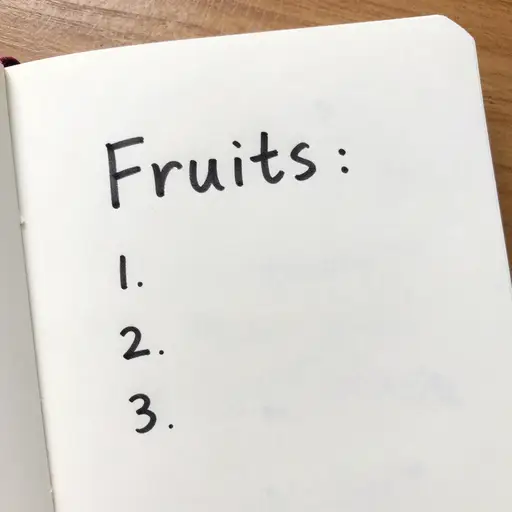 Fruits:
1.
2.
3.